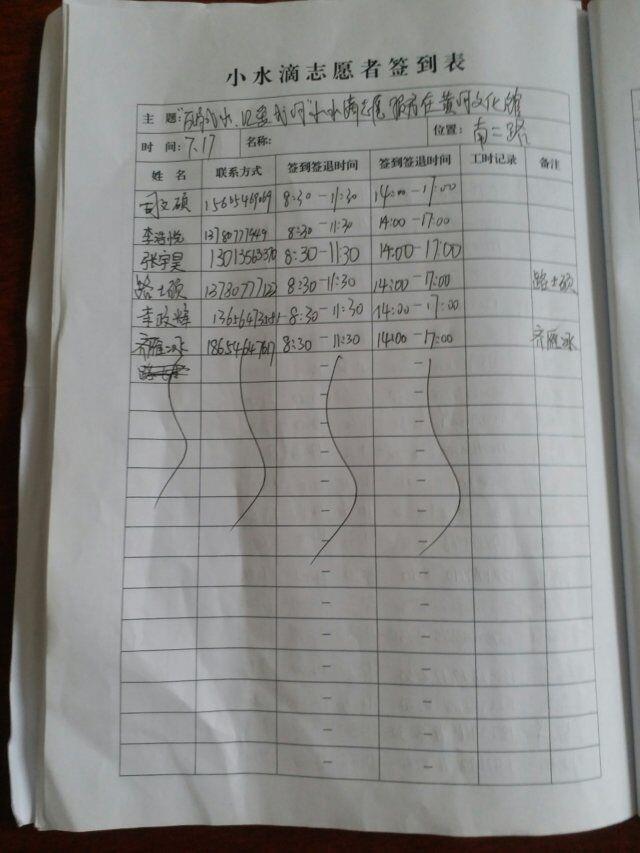 小水滴志愿者签到表
主 题: 小水滴志愿服务在黄河文化馆
时 间: 7.17 名称: 位置: 南二路
姓 名 联系方式 签到签退时间 签到签退时间 工时记录 备注
司立硕 8:30-11:30 14:00-17:00
李浩悦 8:30-11:30 14:00-17:00
张宇昊 13013563370 8:30-11:30 14:00-17:00
路士硕 13780777122 8:30-11:30 14:00-17:00 路士硕
李政烨 8:30-11:30 14:00-17:00
齐雁冰 18654647617 8:30-11:30 14:00-17:00 齐雁冰